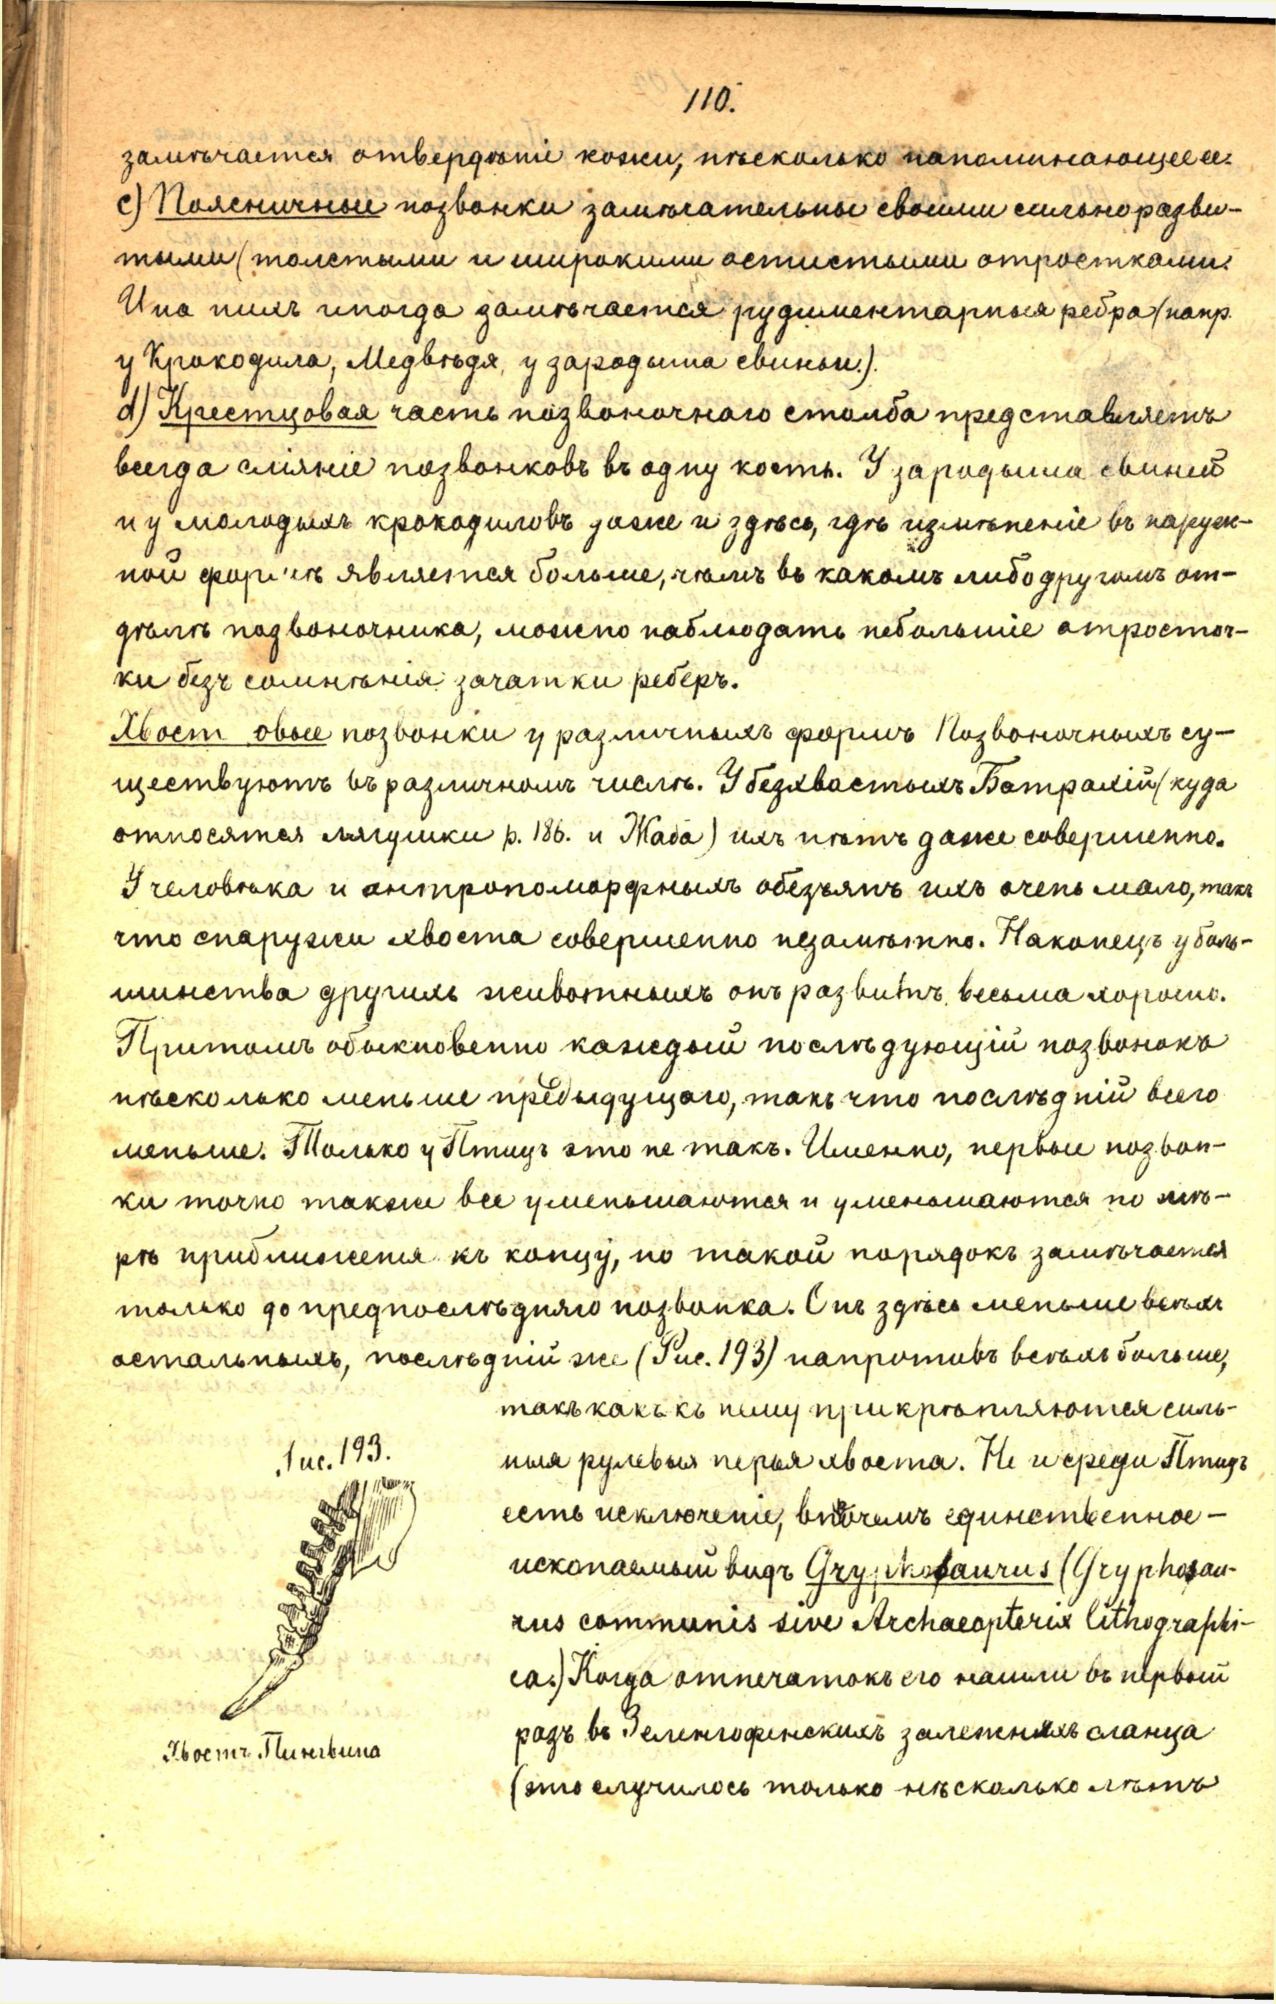 110.
замѣчается отвердѣніе кожи, нѣсколько напоминающее ее.
c) Поясничные позвонки замѣчательны своими сильно разви-
тыми (толстыми и широкими остистыми отростками.
И на нихъ иногда замѣчается рудиментарныя ребра (напр.
у Крокодила, Медвѣдя, у зародыша свиньи.).
d) Крестцовая часть позвоночнаго столба представляетъ
всегда сліяніе позвонковъ въ одну кость. У зародыша свиней
и у молодыхъ крокодиловъ даже и здѣсь, гдѣ измѣненіе въ наруж-
ной формѣ является больше, чѣмъ въ какомъ либо другомъ от-
дѣлѣ позвоночника, можно наблюдать небольшіе отросточ-
ки безъ сомнѣнія зачатки реберъ.
Хвостовые позвонки у различныхъ формъ Позвоночныхъ су-
ществуютъ въ различномъ числѣ. У безхвостыхъ Батрахій (куда
относятся лягушки р. 186. и Жаба) ихъ нѣтъ даже совершенно.
У человѣка и антропоморфныхъ обезъянъ ихъ очень мало, такъ
что снаружи хвоста совершенно незамѣтно. Наконецъ у боль-
шинства другихъ животныхъ онъ развитъ весьма хорошо.
Притомъ обыкновенно каждый послѣдующій позвонокъ
нѣсколько меньше предыдущаго, такъ что послѣдній всего
меньше. Только у Птицъ это не такъ. Именно, первые позвон-
ки точно также все уменьшаются и уменьшаются по мѣ-
рѣ приближенія къ концу, но такой порядокъ замѣчается
только до предпослѣдняго позвонка. Онъ здѣсь меньше всѣхъ
остальныхъ, послѣдній же (Рис. 193) напротивъ всѣхъ больше,
такъ какъ къ нему прикрѣпляются силь-
ныя рулевыя перья хвоста. Но и среди Птицъ
есть исключеніе, впрочемъ единственное -
ископаемый видъ Gryphosaurus (Gryphosau-
rus communis sive Archaeopterix lithographi-
ca.) Когда отпечатокъ его нашли въ первый
разъ въ Зеленгофенскихъ залежняхъ сланца
(это случилось только нѣсколько лѣтъ
Рис. 193.
Хвостъ Пингвина